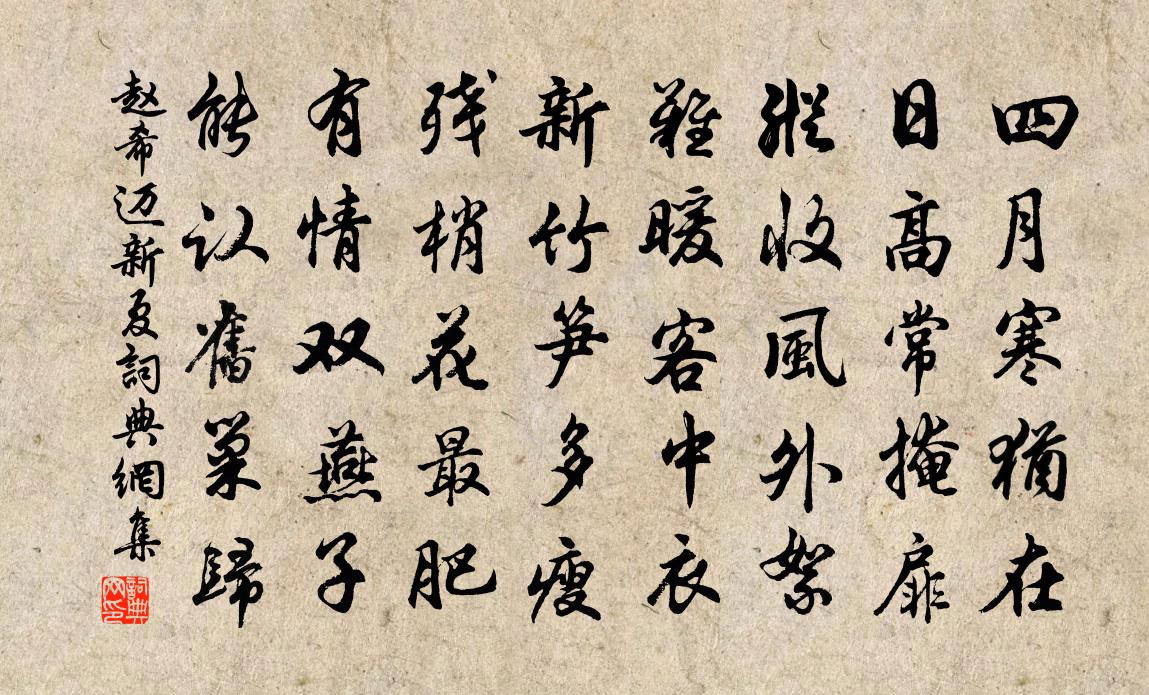 四月寒猶在
日高常掩扉
縱收風外絮
難暖客中衣
新竹笋多瘦
残梢花最肥
有情双燕子
能认舊巢歸
赵希迈新夏詞典網集
詞典
网印